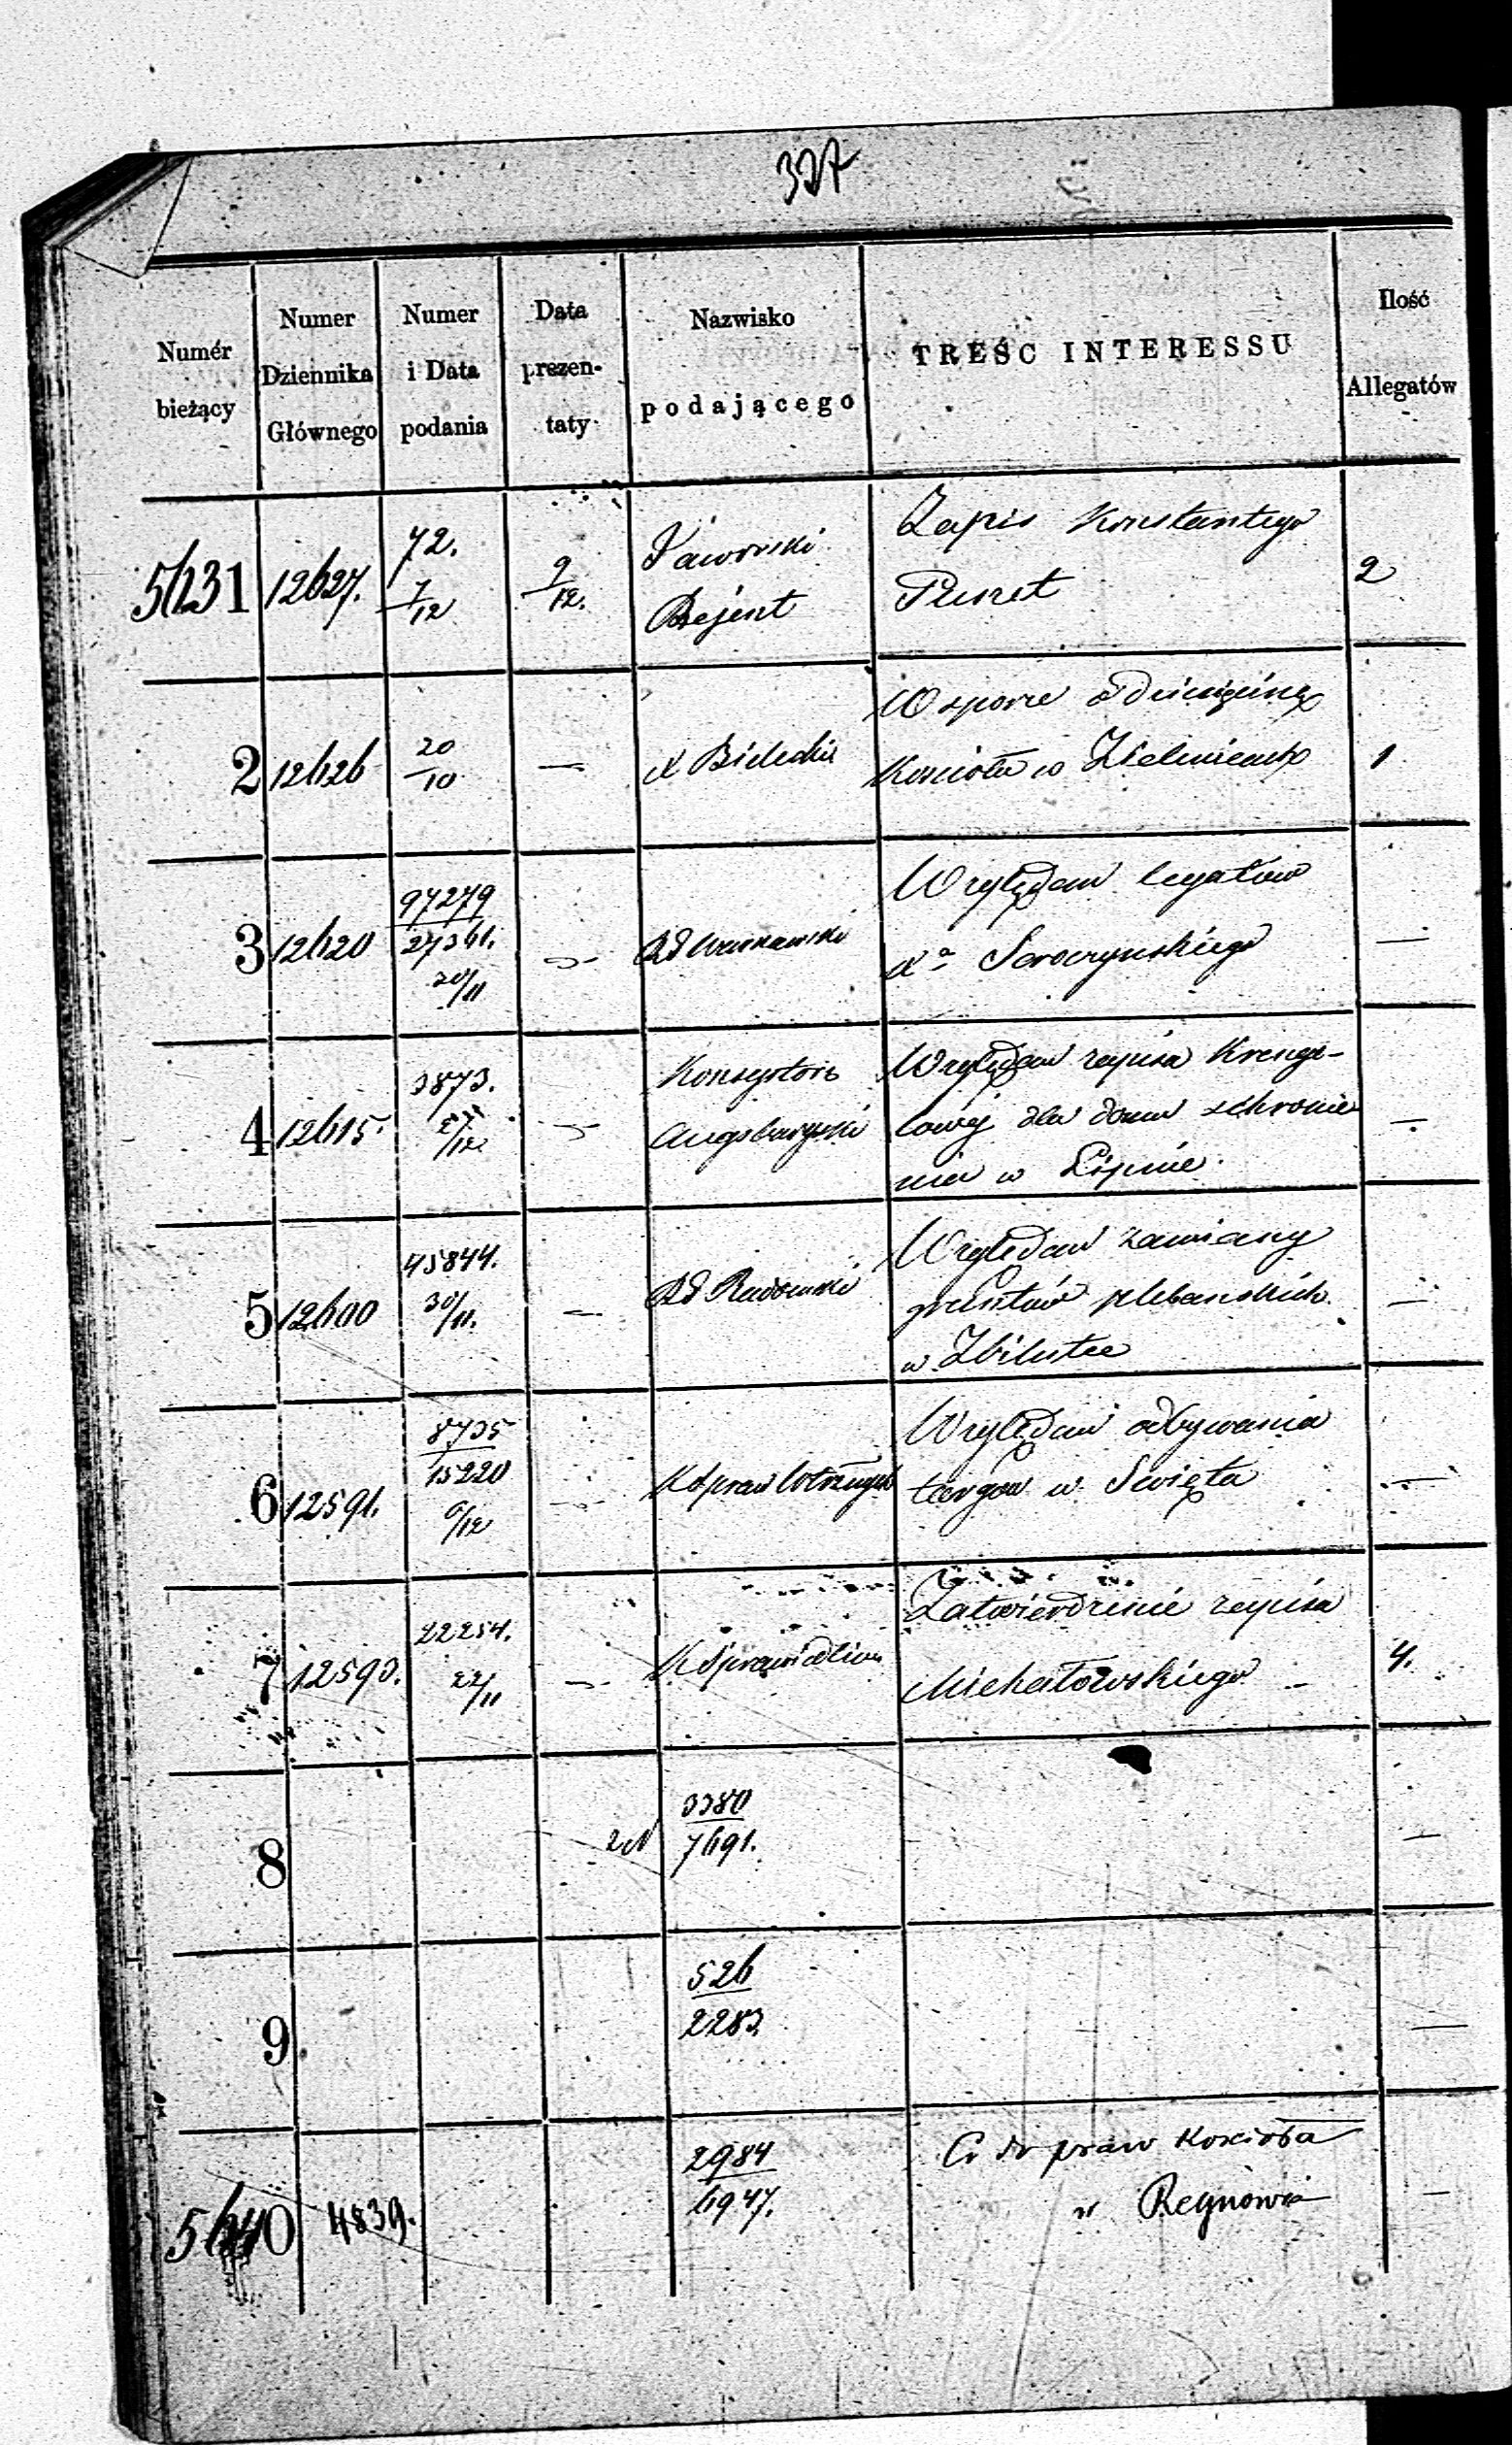 327
Numér bieżący
Numer Dziennika Głównego
Numer i Data podania
Data prezen- taty
Nazwisko podającego
TREŚĆ INTERESSU
Ilość Allegatów
5631
12627.
72.
7/12
9/12.
Jaworski
Rejent
Zapis Konstantego
2
2
12626
20/10
—
X Bielecki
W sporze o dziesięcinę
Kościoła w Zielenicach
1
3
12620
97279
27361.
20/11
—
RG Warszawski
Względem legatów
Xa Soroczynskiego
—
4
12615.
3873.
Konsystorz
Augsburgski
Względem zapisu Krenge-
lowej dla domu schronie
nia w Lipnie.
—
5
12600
45844.
30/11.
—
RG Radomski
Względem zamiany
gruntów plebanskich
w Zbilutce
—
6
12591.
8735
15220
6/12
—
K Spraw Wewnętrznych
Względem odbywania
targów w Swięta
—
7
12590.
22254.
22/11
—
K Sprawiedliw
Zatwierdzenie zapisu
Michałowskiego
4.
8
3380
7691.
—
9
526
2283.
—
5640
4839.
2984
6947.
praw Kościoła
w Regnowie
—